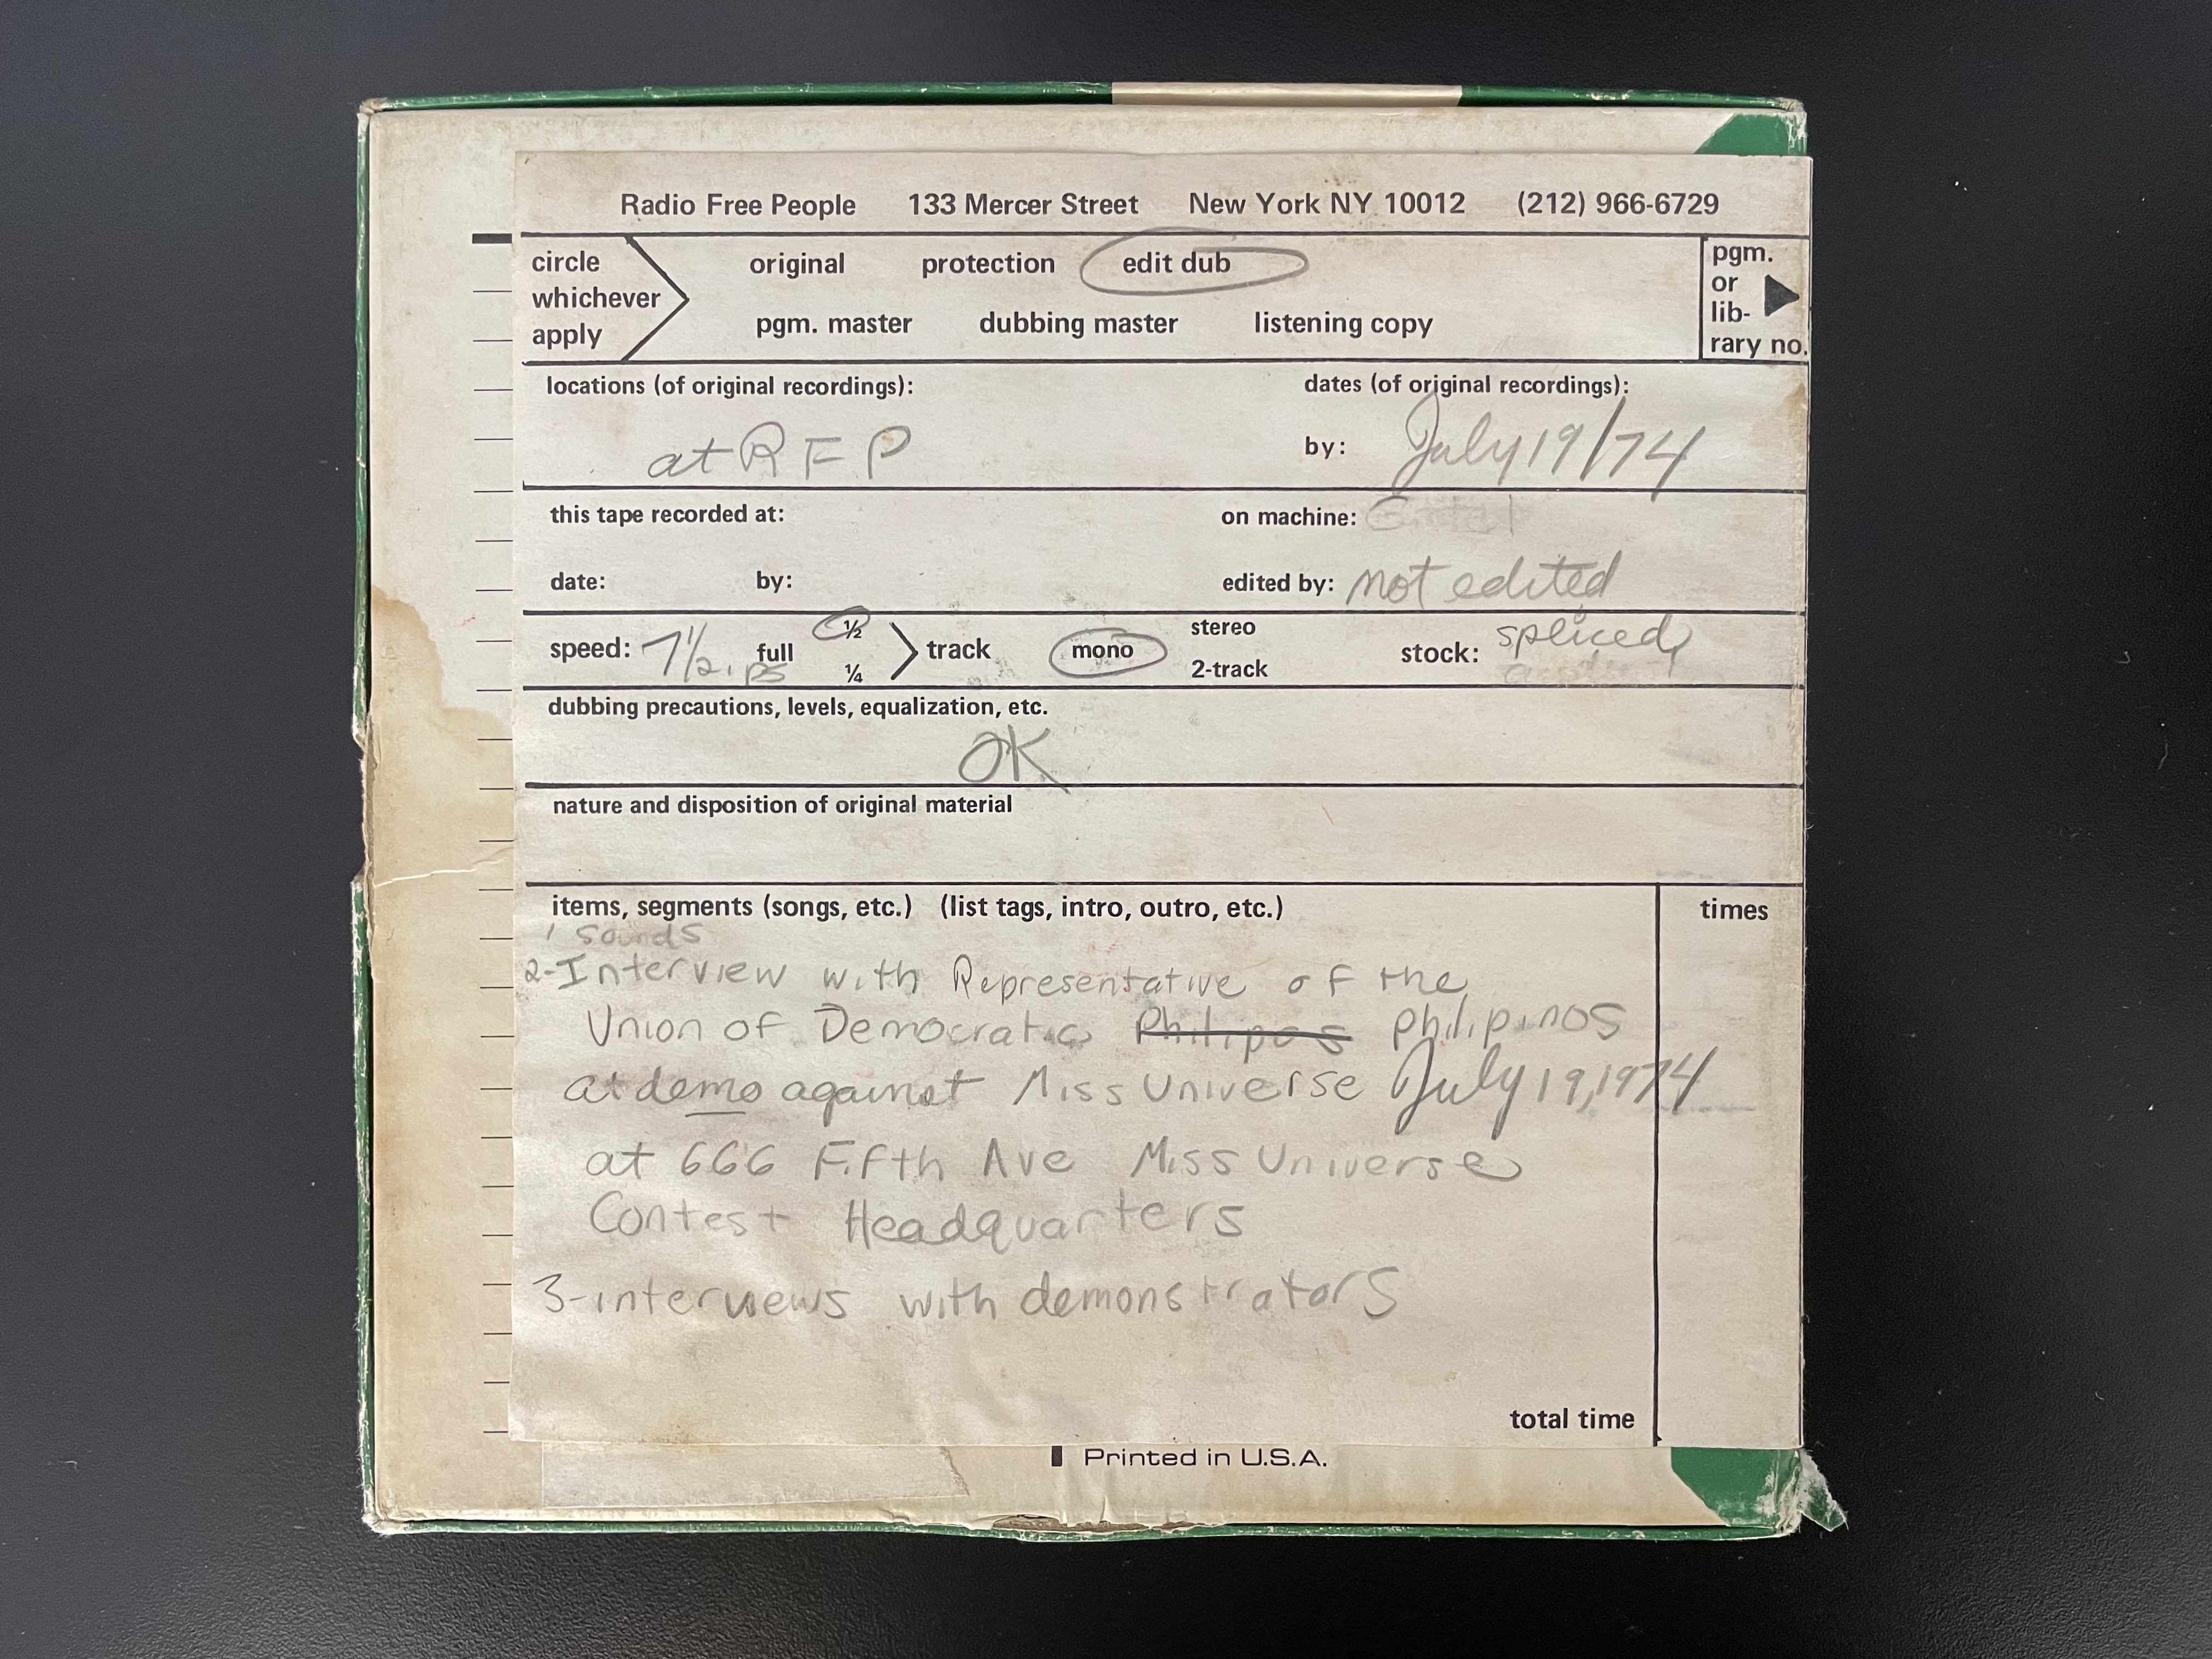 Radio Free People 133 Mercer Street New York NY 10012 (212) 966-6729
circle whichever apply
original protection edit dub
pgm. master dubbing master listening copy
pgm. or lib- rary no.
locations (of original recordings): dates (of original recordings):
at RFP by: July 19/74
this tape recorded at: on machine:
date: by: edited by: not edited
speed: 7 1/2 ips full 1/2 1/4 track mono stereo 2-track stock: spliced
dubbing precautions, levels, equalization, etc.
OK
nature and disposition of original material
items, segments (songs, etc.) (list tags, intro, outro, etc.) times
1 Sounds
2-Interview with Representative of the
Union of Democratic Philipos philipinos
at demo against Miss Universe July 19, 1974
at 666 Fifth Ave Miss Universe
Contest Headquarters
3-interviews with demonstrators
total time
Printed in U.S.A.